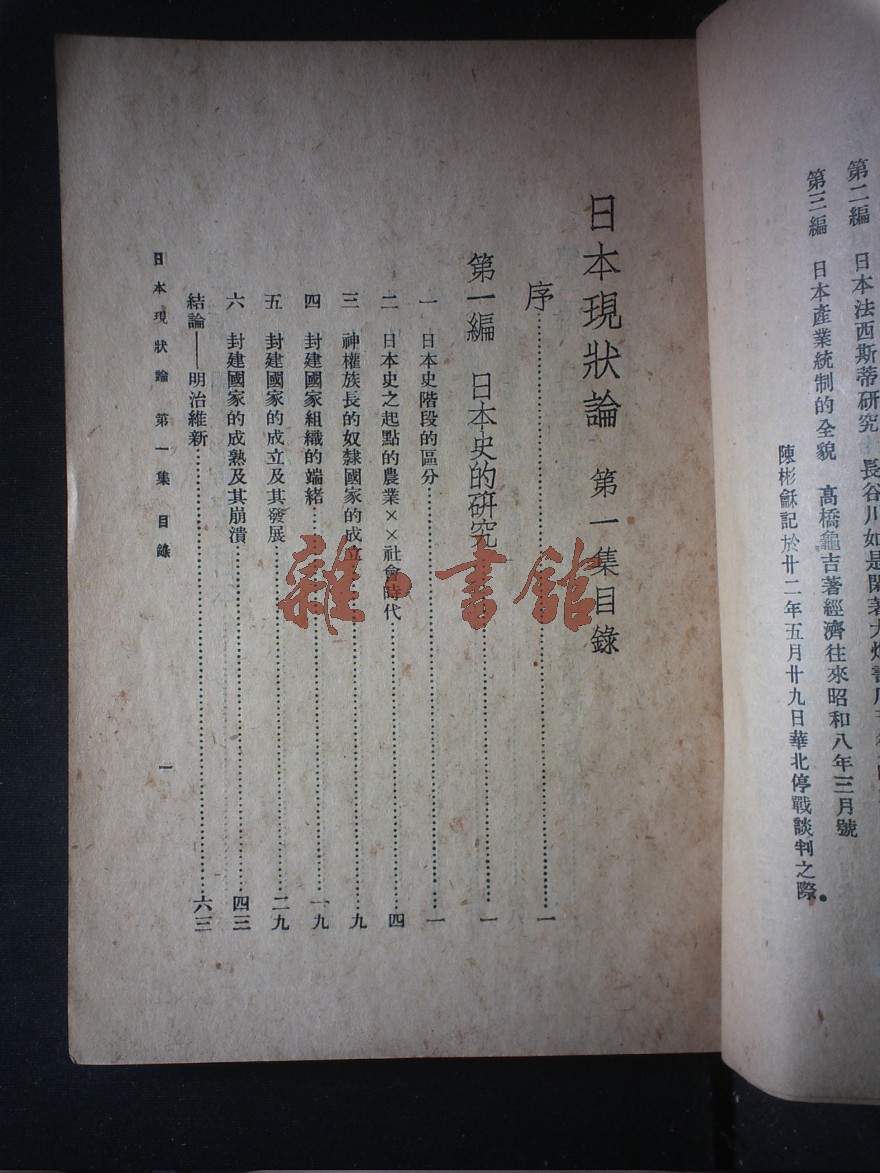 第二編　日本法西斯蒂研究　長谷川如是閑著大畑書店
第三編　日本產業統制的全貌　高橋龜吉著經濟往來昭和八年三月號
陳彬龢記於廿二年五月廿九日華北停戰談判之際。
日本現狀論　第一集目錄
序……一
第一編　日本史的研究……一
一　日本史階段的區分……一
二　日本史之起點的農業××社會時代……四
三　神權族長的奴隸國家的成立……九
四　封建國家組織的端緒……一九
五　封建國家的成立及其發展……二九
六　封建國家的成熟及其崩潰……四三
結論——明治維新……六三
日本現狀論　第一集　目錄
一
雜·書館